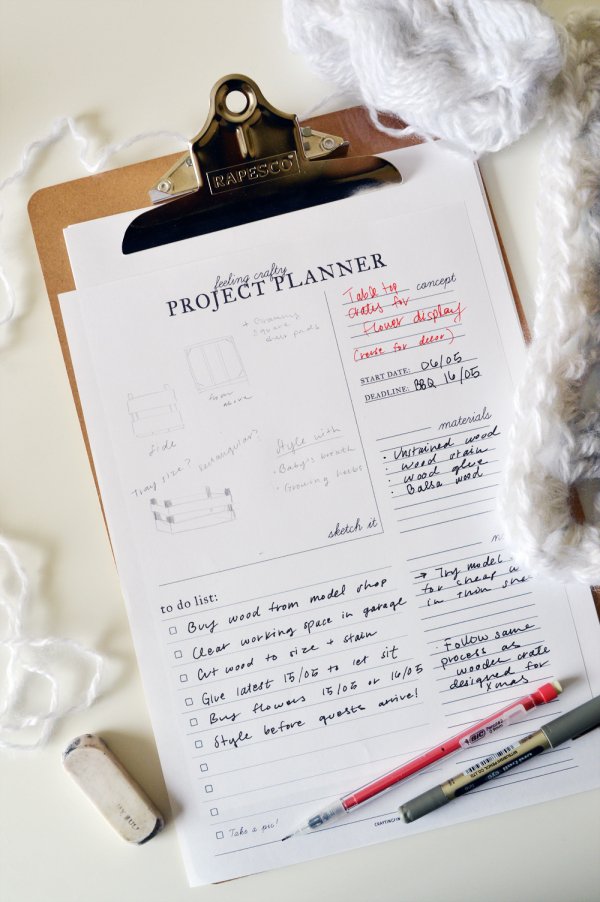 RAPESCO
feeling crafty
PROJECT PLANNER
+ Drawing
square
from
above
Side
Tray size? rectangular?
Style with
· Baby's breath
· Growing herbs
sketch it
concept
Table top
crates for
flower display
(reuse for decor)
START DATE: 06/05
DEADLINE: BBQ 16/05
materials
· Unstained wood
· wood stain
· wood glue
· Balsa wood
→ Try model
for cheap
in thin
· Follow same
process as
wooden crate
designed for
Xmas
to do list:
Buy wood from model shop
Clear working space in garage
Cut wood to size + stain
Give latest 15/05 to let sit
Buy flowers 15/05 or 16/05
Style before guests arrive!
Take a pic!
BIC